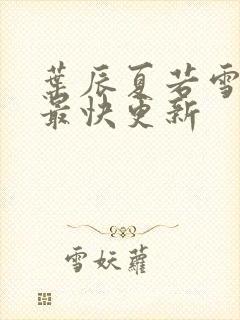 葉辰夏若雪
最快更新
雪妖蘿